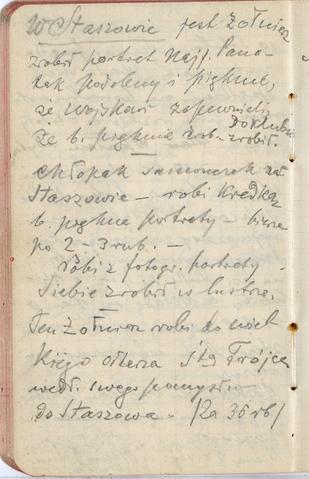 W Staszowie jest żołnierz
zrobił portret Najj. Pana
tak podobny i piękny,
że wojskowi zapewnieli,
że b. pięknie zrob- zrobił.
Do klubu
chłopak samouczek zał
Staszowie – robi kredką
b. piękne portrety – bierze
po 2 - 3 rub. –
Robi z fotogr. portrety –
Siebie zrobił w lustrze.
Ten żołnierz robi do
kiego ołtarza Stą Trójcę
wedł. swego pomysłu
do Staszowa. /za 36 rb/